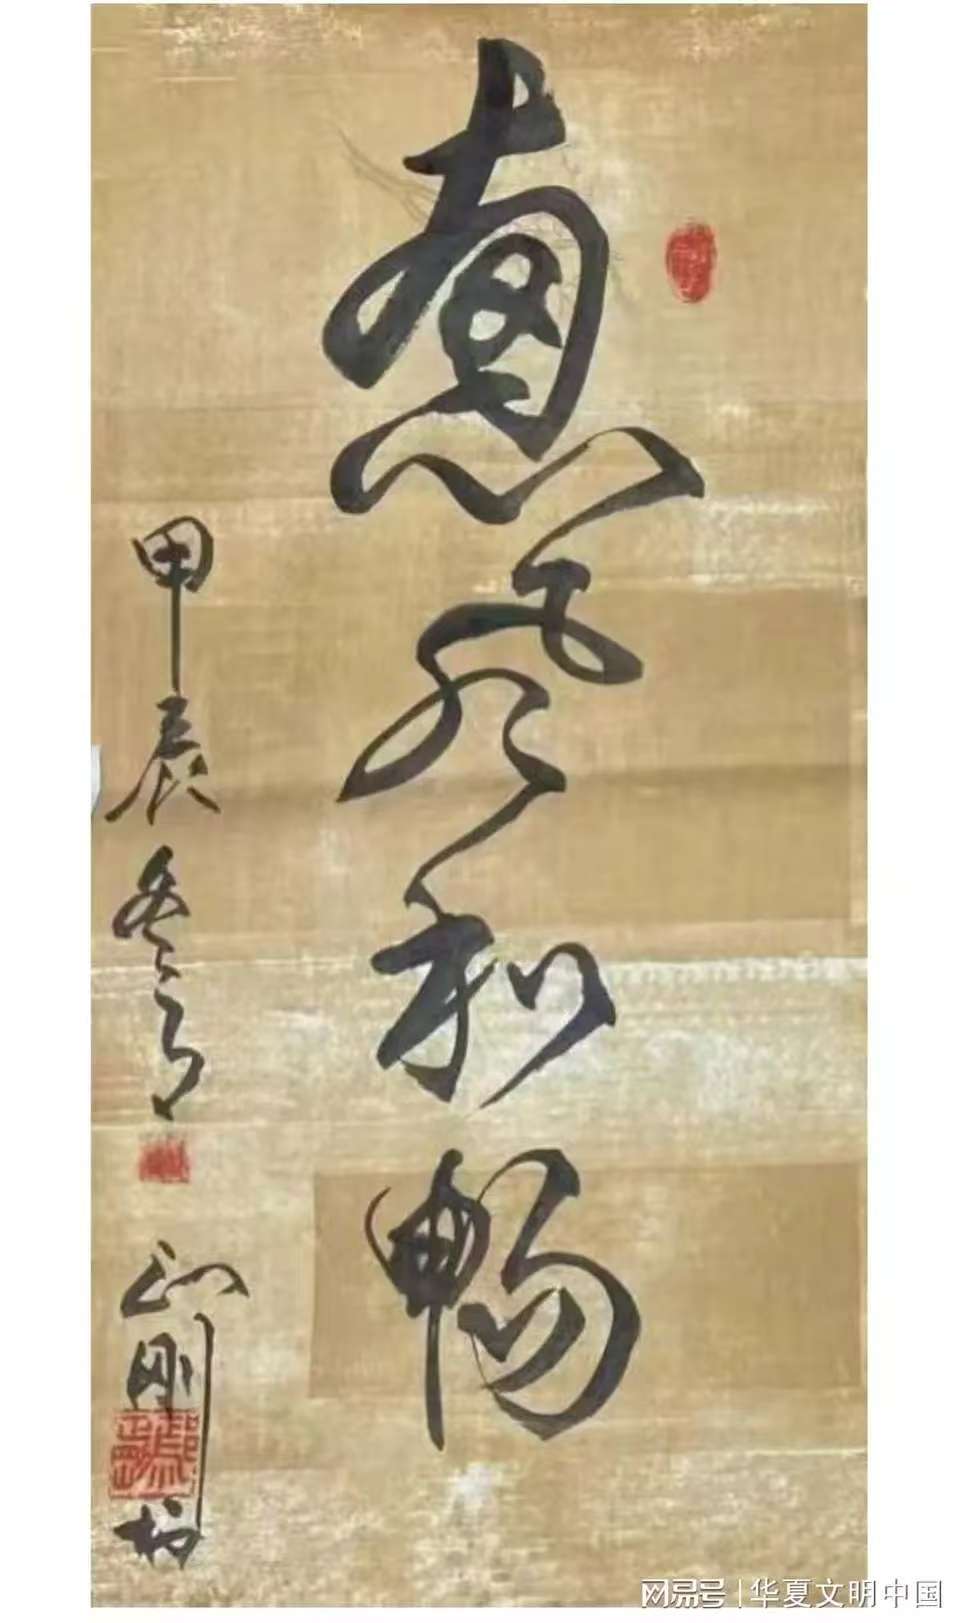 惠风和畅
甲辰冬月
正刚
网易号 | 华夏文明中国